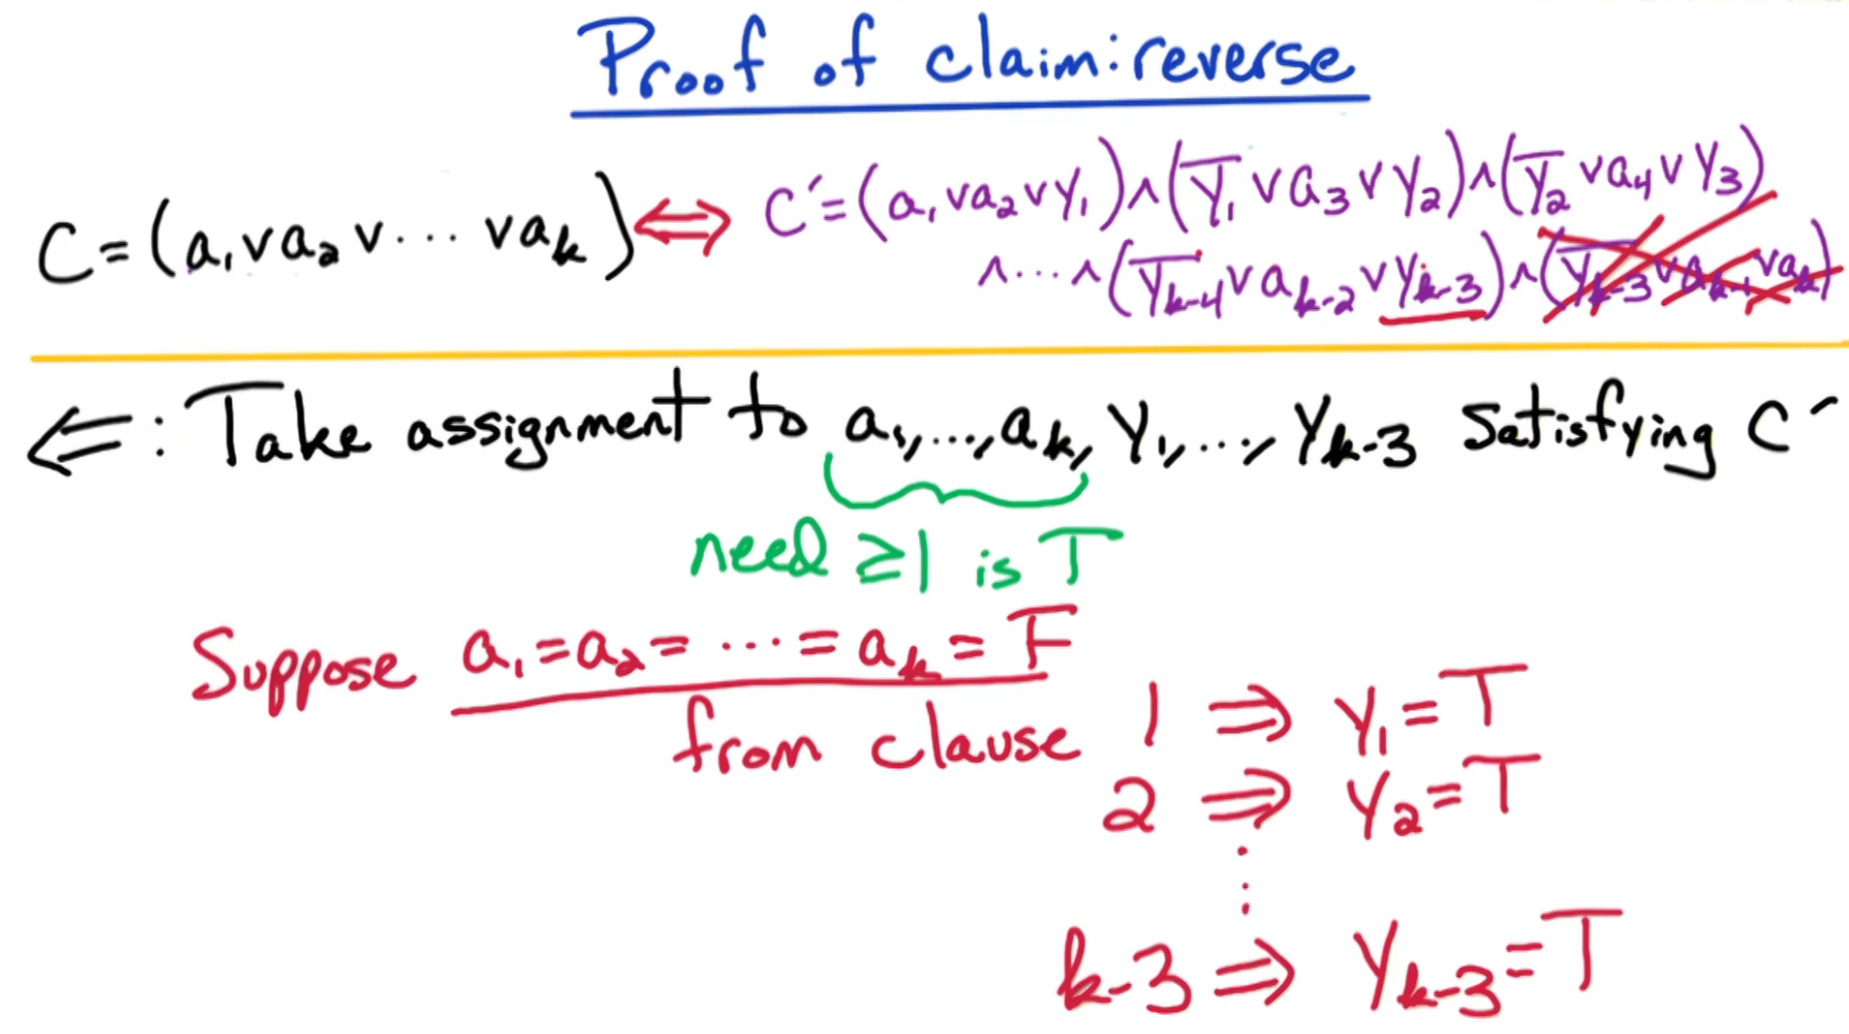 Proof of claim: reverse
C = (a₁ ∨ a₂ ∨ ··· ∨ aₖ) ⇔ C′ = (a₁ ∨ a₂ ∨ y₁) ∧ (y̅₁ ∨ a₃ ∨ y₂) ∧ (y̅₂ ∨ a₄ ∨ y₃)
∧ ··· ∧ (y̅ₖ₋₄ ∨ aₖ₋₂ ∨ yₖ₋₃) ∧ (y̅ₖ₋₃ ∨ aₖ₋₁ ∨ aₖ)
⇐: Take assignment to a₁, ..., aₖ, y₁, ..., yₖ₋₃ satisfying C′
need ≥1 is T
Suppose a₁ = a₂ = ··· = aₖ = F
from clause 1 ⇒ y₁ = T
2 ⇒ y₂ = T
⋮
k-3 ⇒ yₖ₋₃ = T